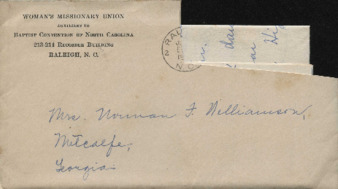 WOMAN'S MISSIONARY UNION
AUXILIARY TO
BAPTIST CONVENTION OF NORTH CAROLINA
215-214 RECORDER BUILDING
RALEIGH, N. C.
RAL
N.C.
Mrs. Norman F. Williamson,
Metcalfe,
Georgia